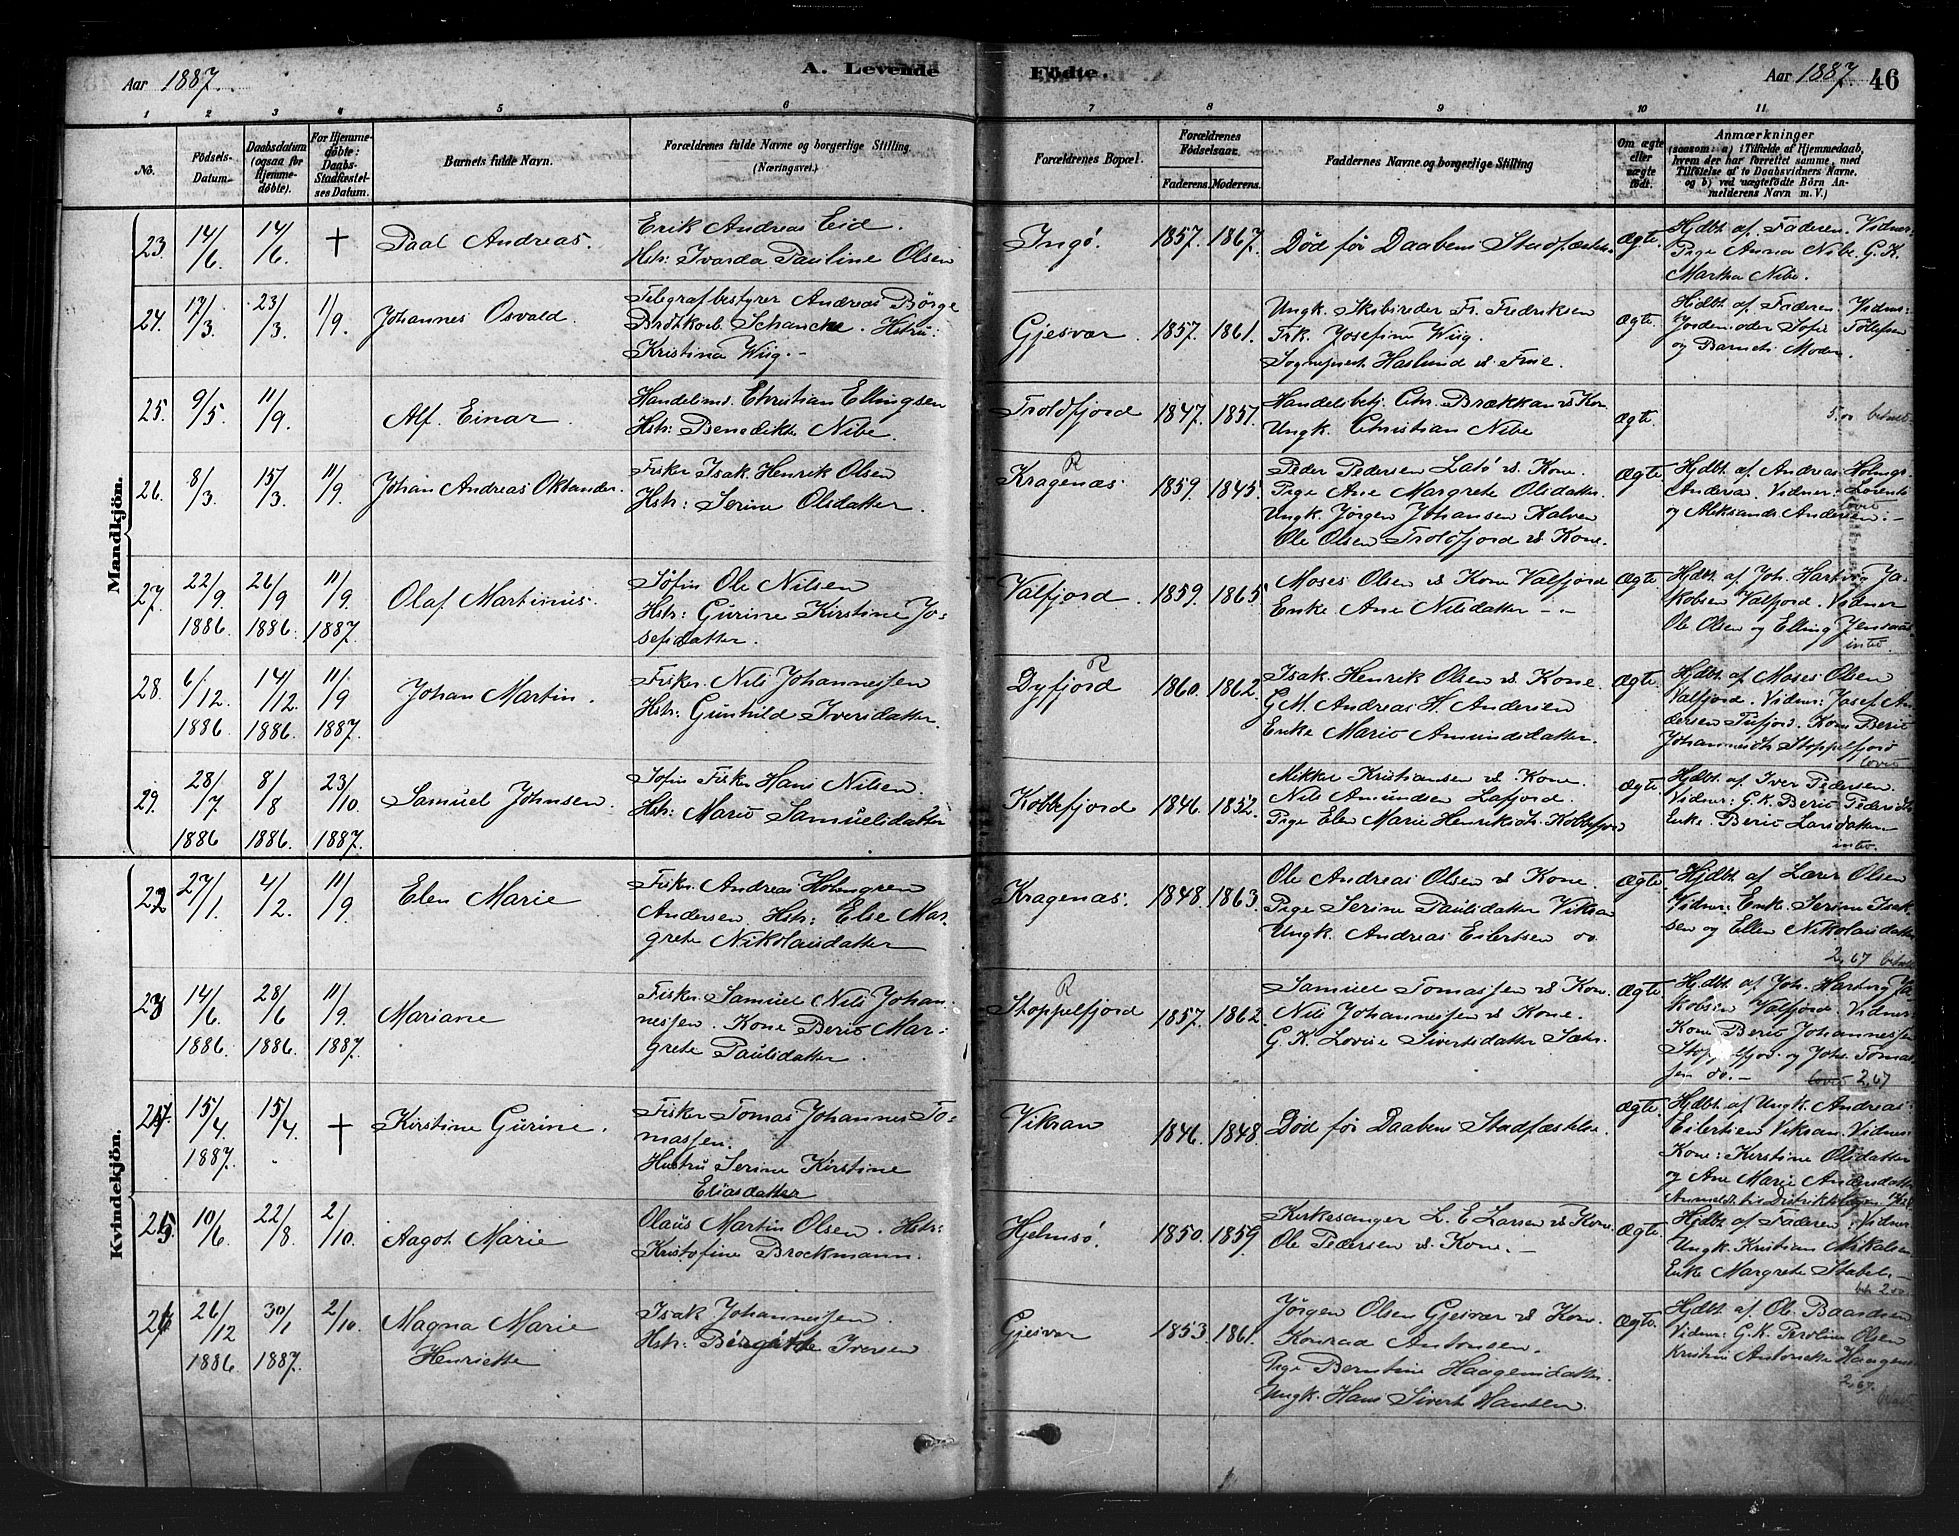 Aar 1887.
A. Levende
Födte.
Aar 1887.
46
1 2 3 4 5 6 7 8 9 10 11
No.
Födsels-
Datum.
Daabsdatum
(ogsaa for
Hjemme-
døbte).
For Hjemme-
döbte:
Daabs-
Stadfæstel-
ses Datum.
Barnets fulde Navn.
Forældrenes fulde Navne og borgerlige Stilling
(Næringsvei.)
Forældrenes Bopæl.
Forældrenes
Födselsaar.
Faderens. Moderens.
Faddernes Navne og borgerlige Stilling
Om ægte
eller
uægte
födt.
Anmærkninger
(saasom: a) i Tilfælde af Hjemmedaab,
hvem der har forrettet samme, med
Tilföielse af to Daabsvidners Navne,
og b) ved uægtefödte Börn An-
melderens Navn m. V.)
Mandkjön.
23. 14/6 14/6 † Paal Andreas.
Erik Andreas Eid.
Hstr: Ivarda Pauline Olsen
Ingö. 1857. 1867. Død før Daabens Stadfæstelse Ægte.
Hjdbt. af Faderen. Vidner
Pige Anna Nibe. G.K.
Martha Nibe.
24. 17/3 23/3 11/9. Johannes Osvald
Telegrafbestyrer Andreas Börge
Brodtkorb Schancke. Hstru:
Kristina Wiig.-
Gjesvær. 1857. 1861.
Ungk. Skibsreder Fr. Fredriksen
Frk. Josefine Wiig.
Sogneprest Haslund & Frue.
Ægte.
Hjdbt. af Faderen. Vidner:
Jordemoder Sofie Tollefsen
og Barnets Moder.
25. 9/5 11/9. Alf Einar.
Handelsmd. Christian Ellingsen
Hstr: Benedikte Nibe.
Troldfjord 1847. 1857.
Handelsbetj. Chr. Brækkan & Kone
Ungk. Christian Nibe
Ægte.
5,00 betalt
26. 8/3 15/3 11/9 Johan Andreas Oktander.
Fisker Isak Henrik Olsen
Hstr: Serine Olsdatter.
R
Kragenæs. 1859. 1845.
Peder Pedersen Latö & Kone.
Pige Ane Margrete Olsdatter.
Ungk. Jörgen Johansen Kalven
Ole Olsen Troldfjord & Kone.
Ægte.
Hjdbt. af Andreas Holmgr.
Andersen. Vidner: Lorents
og Aleksander Andersen.-
27. 22/9 1886. 26/9 1886. 11/9. 1887. Olaf Martinus.
Söfin Ole Nilsen
Hstr: Gurine Kirstine Jo-
sefsdatter.
Valfjord. 1859. 1865.
Moses Olsen & Kone Valfjord
Enke Ane Nilsdatter - -
Ægte.
Hjdbt. af Joh. Hartvig Ja-
kobsen Valfjord. Vidner
Ole Olsen og Elling
28. 6/12 1886. 14/12. 1886. 11/9 1887. Johan Martin.
Fisker Nils Johannesen
Hstr: Gunhild Iversdatter.
R
Dyfjord 1860. 1862.
Isak Henrik Olsen & Kone.
G.M. Andreas H. Andersen
Enke Marit Amundsdatter.
Ægte.
Hjdbt. af Moses Olsen
Valfjord. Vidner: Josef An-
dersen Tufjord. Kone Berit
Johannesdt. Stoppelfjord
29. 28/7 1886 8/8 1886. 23/10. 1887. Samuel Johnsen.
Söfin Fisker Hans Nilsen.
Hstr: Marit Samuelsdatter
Kobbefjord 1846. 1852.
Mikkel Kristiansen & Kone.
Nils Amundsen Lafjord.
Pige Elen Marie Henriksdt. Kobbefjord
Ægte.
Hjdbt. af Iver Pedersen.
Vidner: G.K. Berit Pedersdt.
Enke Berit Larsdatter.
Kvindekjön.
22. 27/1. 4/2. 11/9 Elen Marie
Fisker Andreas Holmgren
Andersen Hstr: Else Mar-
grete Nikolaisdatter
Kragenæs. 1848. 1863.
Ole Andreas Olsen & Kone.
Pige Serine Paulsdatter Viksan
Ungk. Andreas Eilertsen do.
Ægte.
Hjdbt. af Lærer Olsen
Vidner: Enke Serine Isak-
sen og Ellen Nikolaisdatter
2,67 betalt
23. 14/6 1886. 28/6 1886. 11/9. 1887 Mariane
Fisker Samuel Nils Johan-
nesen. Kone Berit Mar-
grete Paulsdatter.
R
Stoppelfjord 1857. 1862.
Samuel Tomassen & Kone.
Nils Johannesen & Kone.
G.K. Lovise Sivertsdatter Sætr.
Ægte.
Hjdbt. af Joh. Hartvig Ja-
kobsen Valfjord. Vidner
Kone Berit Johannesen
Stoppelfjord og Johs. Tomas-
sen do.- 2,67
24. 15/4. 1887. 15/4. † Kirstine Gurine.
Fisker Tomas Johannes To-
massen.
Hustru Serine Kirstine
Eliasdatter
Viksan 1846. 1848. Død før Daabens Stadfæstelse. Ægte.
Hjdbt. af Ungk. Andreas
Eilertsen Viksan. Vidner
Kone: Kirstine Olsdatter
og Ane Marie Andersdatter
25. 10/6. 22/8. 2/10. Aagot Marie
Olaus Martin Olsen. Hstr:
Kristofine Brockmann.
Hjelmsö. 1850. 1859
Kirkesanger L. E. Larsen & Kone.
Ole Pedersen & Kone.-
Ægte.
Hjdbt. af Faderen. Vidner
Ungk. Kristian Mikalsen
Enke Margrete Stabel.-
26. 26/12 1886. 30/1 1887. 2/10. Magna Marie
Henriette
Isak Johannesen.
Hstr: Bergitte Iversen
Gjesvær 1853. 1861.
Jörgen Olsen Gjesvær & Kone.
Konrad Antonsen.
Pige Berntine Haagensdatter.
Ungk. Hans Sivert Hansen.
Ægte.
Hjdbt. af Ole Baardsen
Vidner: G.K. Peroline Olsen
Kristine Antonette Haagens
2,67.